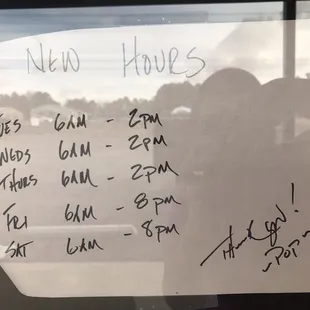 NEW HOURS
TUES 6AM - 2PM
WEDS 6AM - 2PM
THURS 6AM - 2PM
FRI 6AM - 8PM
SAT 6AM - 8PM
THANK YOU!
~POP~